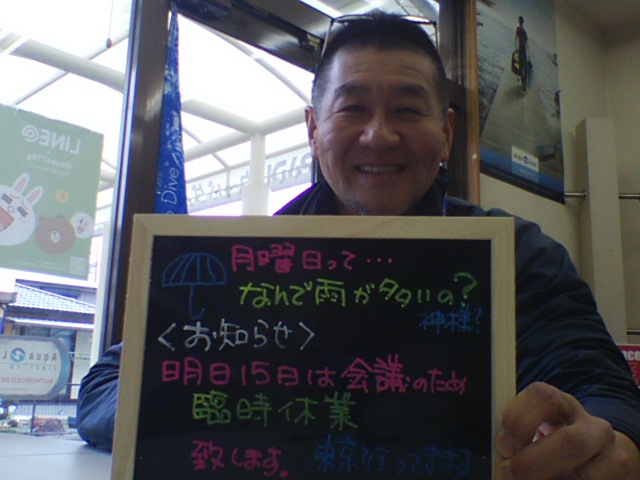 月曜日って…
なんで雨が多いの?
神様?
<お知らせ>
明日15日は会議のため
臨時休業
致します。 東京行ってきます
LINE@
AQUA L
AUTHORIZED
Dive